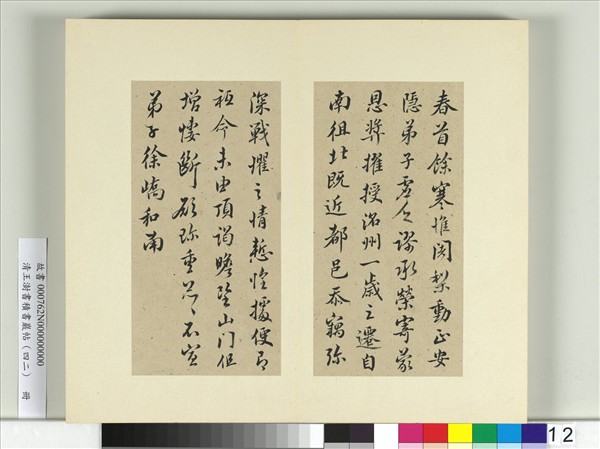 春首餘寒惟闍梨動止安
隱弟子虛乏謬承榮寄蒙
恩獎擢授洺州一歲之遷自
南徂北既近都邑忝竊弥
深戰懼之情慙惶據便即
祗今未由頂謁瞻望山門但
增悽斷願弥重不宣
弟子徐嶠和南
故書000762N000000000
清王澍書積書巖帖（四二） 冊
12